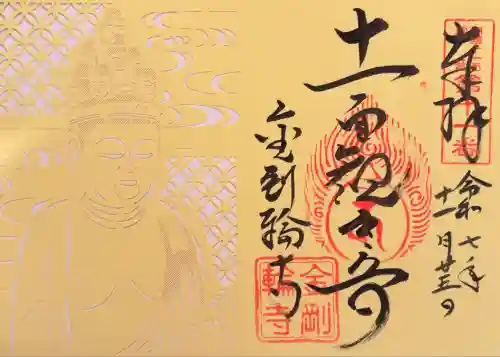 奉拝
令和七年
十一月廿三日
十一面観世音
金剛輪寺
金剛
輪寺